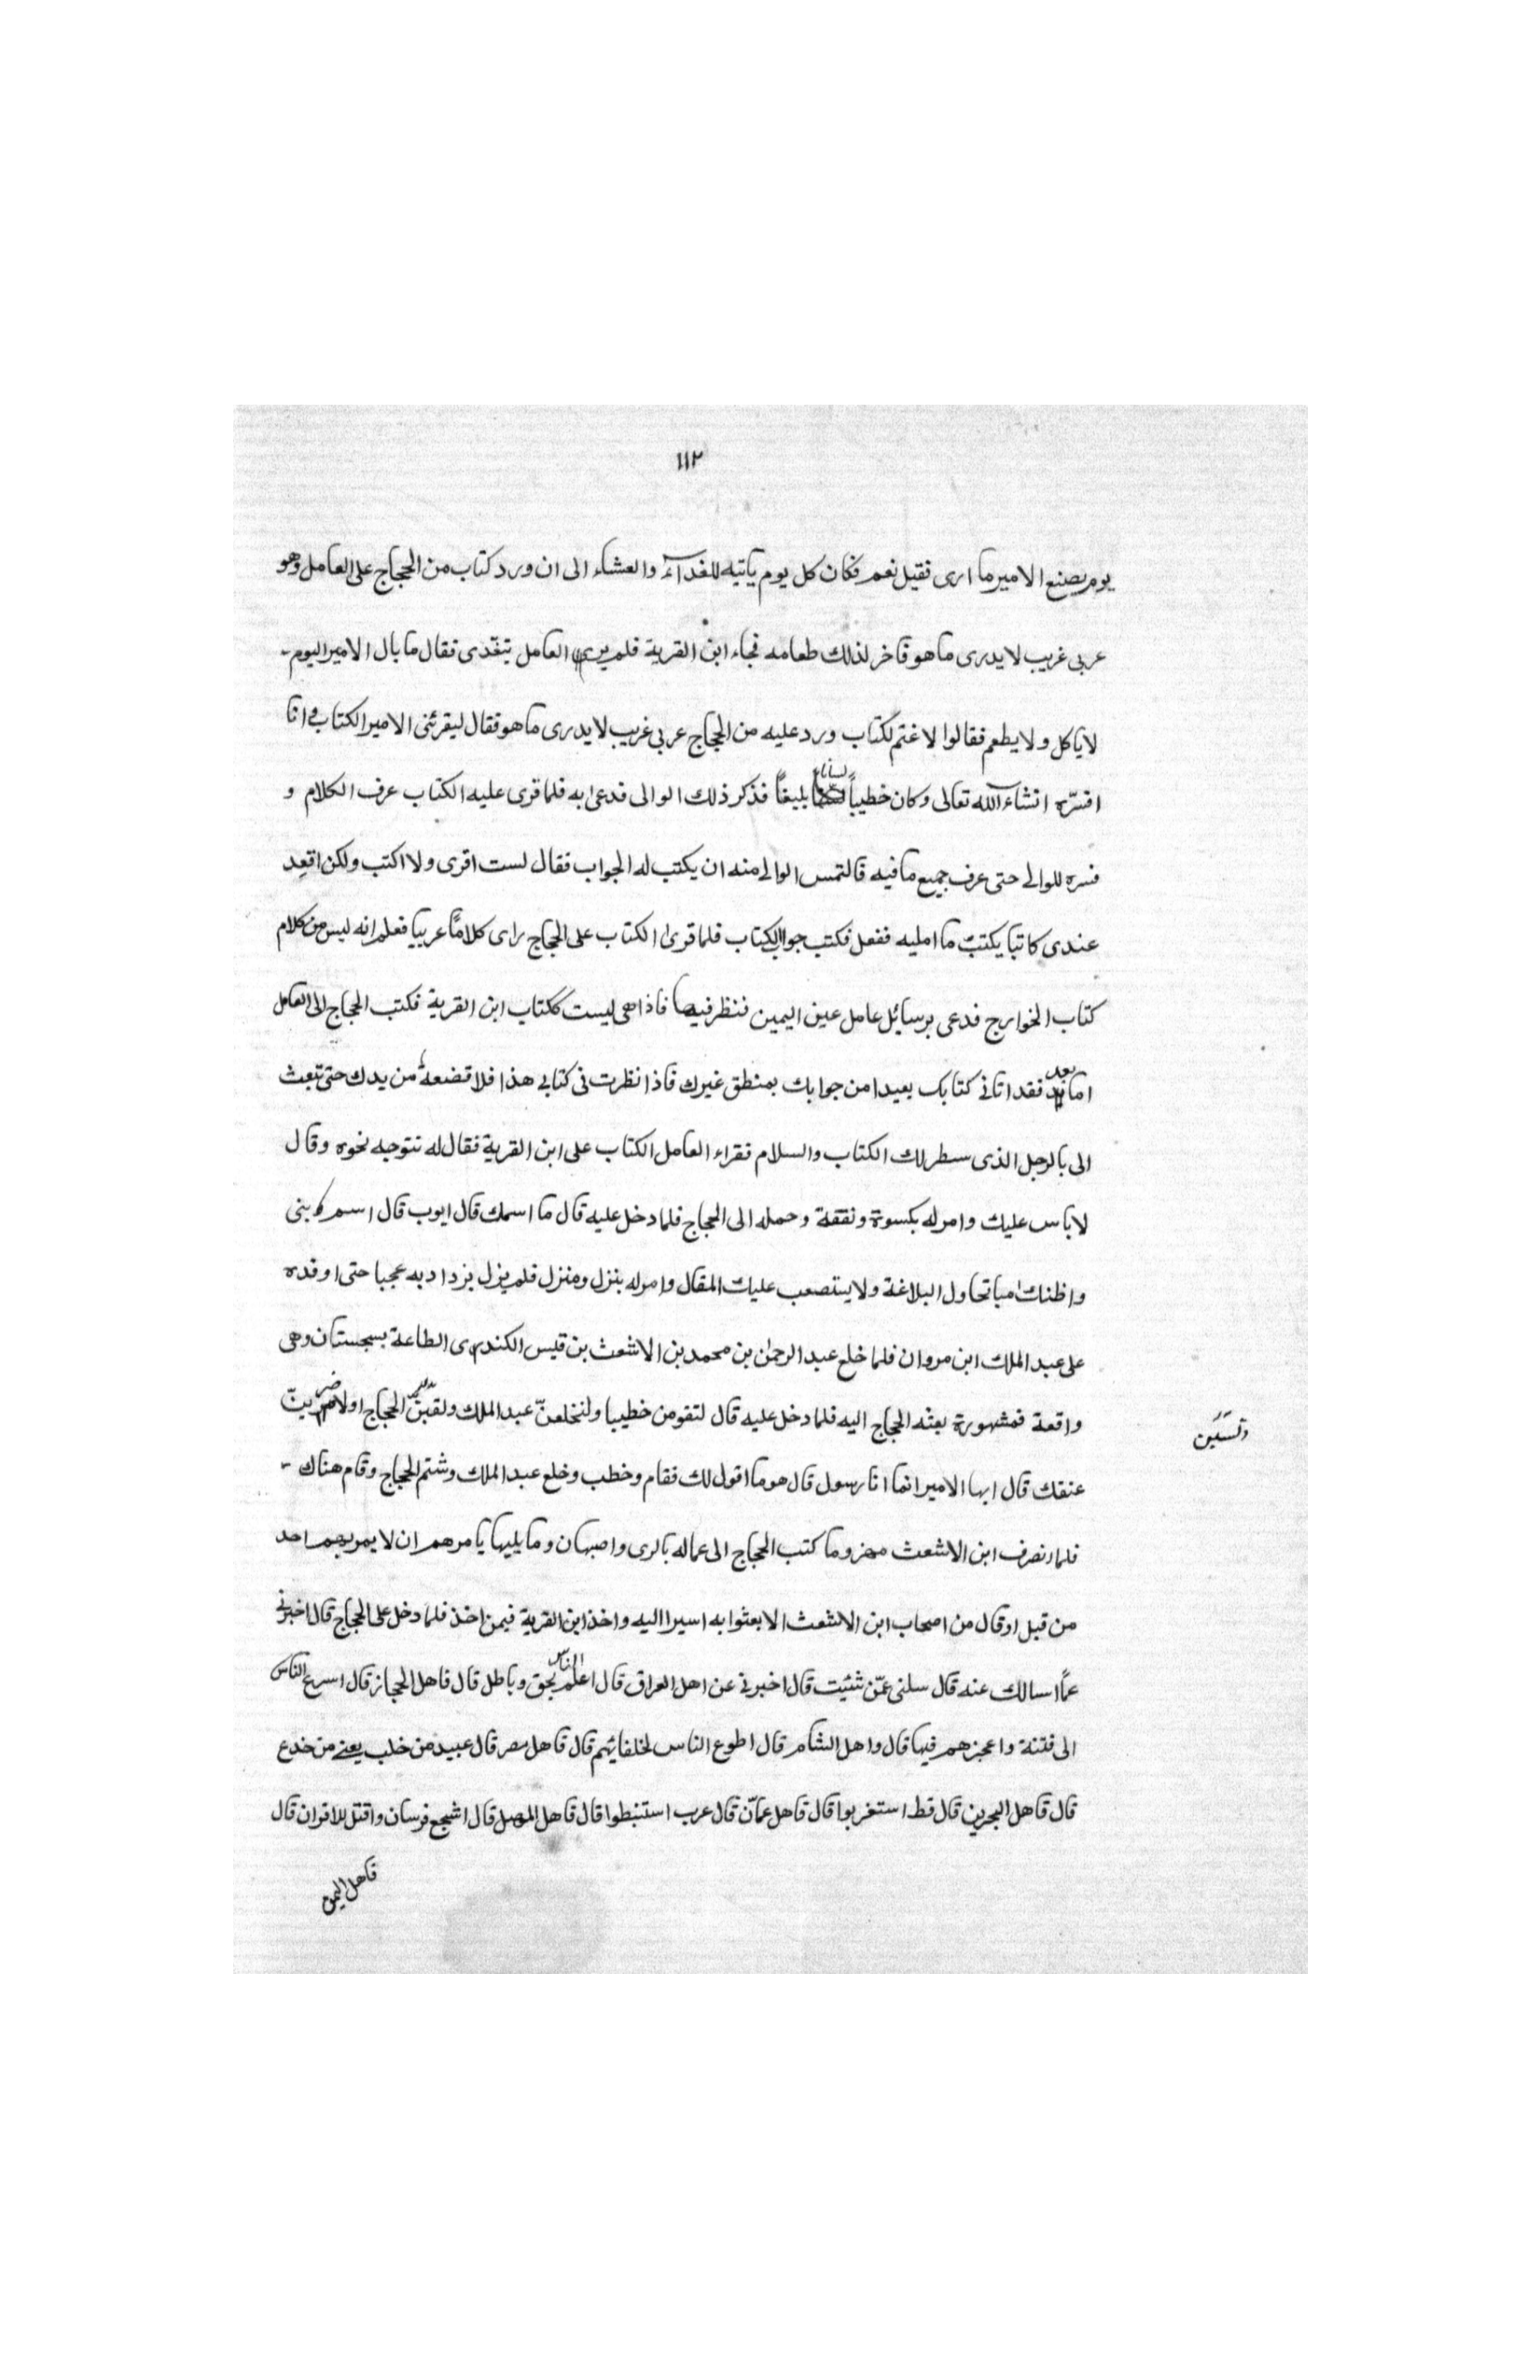 ١١٢
يوم يصنع الامير ما ارى فقيل نعم فكان كل يوم ياتيه للغدآء والعشاء الى ان ورد كتاب من الحجاج على العامل وهو
عربى غريب لا يدرى ما هو فاخر لذلك طعامه فجاء ابن القرية فلم يرى العامل يتغدى فقال ما بال الامير اليوم
لا ياكل ولا يطعم فقالوا لاغتم لكتاب ورد عليه من الحجاج عربى غريب لا يدرى ما هو فقال ليقرئنى الامير الكتاب فانا
افسّره انشاء الله تعالى وكان خطيباً لسانا بليغاً فذكر ذلك الوالى فدعى به فلما قرى عليه الكتاب عرف الكلام و
فسره للوالى حتى عرف جميع ما فيه فالتمس الوالى منه ان يكتب له الجواب فقال لست اقرى ولا اكتب ولكن اقعد
عندى كاتبا يكتب ما امليه ففعل فكتب جواب الكتاب فلما قرى الكتاب على الحجاج راى كلامًا عربيا فعلم انه ليس من كلام
كتاب الخوارج فدعى برسائل عامل عين اليمين فنظر فيها فاذا هى ليست ككتاب ابن القرية فكتب الحجاج الى العامل
اما بعد فقد اتانى كتابك بعيدا من جوابك بمنطق غيرك فاذا نظرت فى كتابى هذا فلا تضعه من يدك حتى تبعث
الى بالرجل الذى سطر لك الكتاب والسلام فقراء العامل الكتاب على ابن القرية فقال له تتوجه نحوه وقال
لا باس عليك وامر له بكسوة ونفقة وحمله الى الحجاج فلما دخل عليه قال ما اسمك قال ايوب قال اسم نبى
واظنك اميا تحاول البلاغة ولا يستصعب عليك المقال وامر له بنزل ومنزل فلم يزل يزداد به عجبا حتى اوفده
على عبد الملك ابن مروان فلما خلع عبد الرحمن بن محمد بن الاشعث بن قيس الكندى الطاعة بسجستان وهى
واقعة فمشهورة بعثه الحجاج اليه فلما دخل عليه قال لتقومن خطيبا ولتخلعنّ عبد الملك الحجاج او لاضربنّ
عنقك قال ايها الامير انما انا رسول قال هو ما اقول لك فقام وخطب وخلع عبد الملك وشتم الحجاج وقام هناك
فلما انصرف ابن الاشعث مهزوما كتب الحجاج الى عماله بالرى واصبهان وما يليها يامرهم ان لا يمر بهم احد
من قبل او قال من اصحاب ابن الاشعث الا بعثوا به اسيرا اليه واخذ ابن القرية فيمن اخذ فلما دخل على الحجاج قال اخبرنى
عمّا اسالك عنه قال سلنى عمّن شئيت قال اخبرنى عن اهل العراق قال اعلم الناس بحق وباطل قال فاهل الحجاز قال اسرع الناس
الى فتنة واعجزهم فيها قال واهل الشام قال اطوع الناس لخلفائهم قال فاهل مصر قال عبيد من خلب يعنى من خدع
قال فاهل البحرين قال قط استغربوا قال فاهل عمّان قال عرب استنبطوا قال فاهل الموصل قال اشجع فرسان واقتل للاقران قال
فاهل اليمن